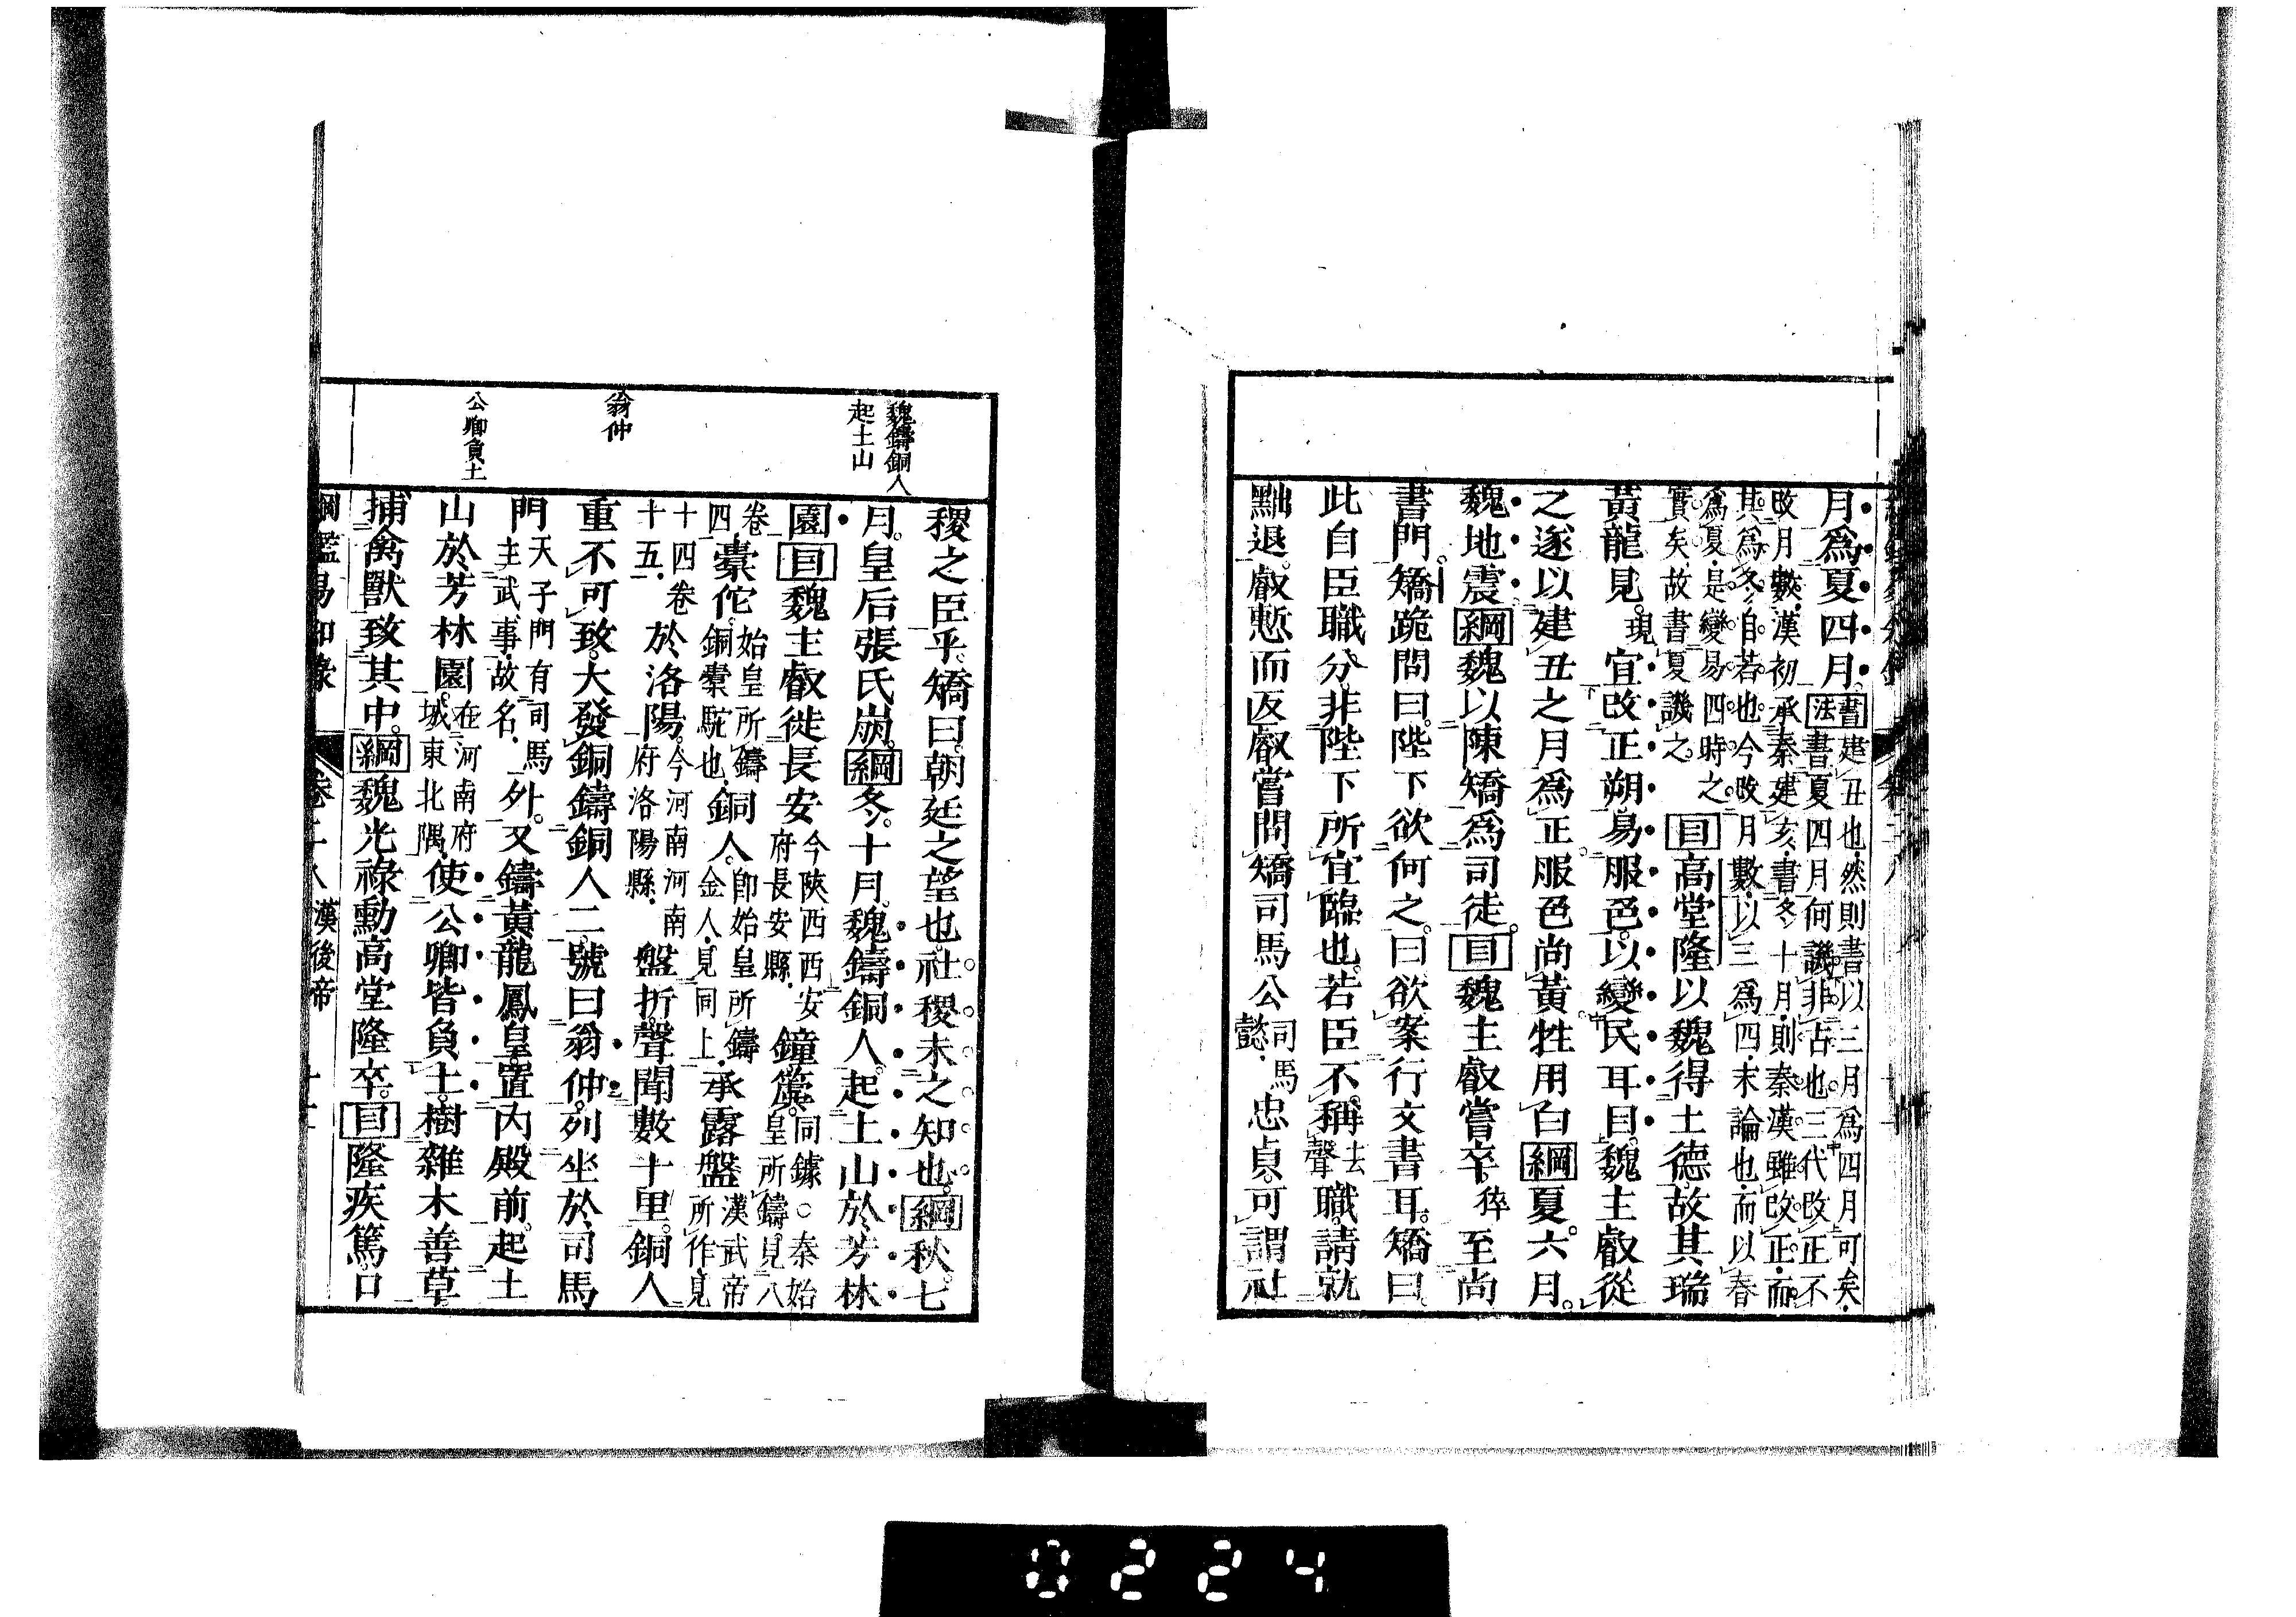 月爲夏四月。書法建丑也.然則書以三月爲四月可矣.
書夏四月何譏.非古也.三代改正不
改月數.漢初承秦建亥.書冬十月.則秦漢雖改正.而
其爲冬.自若也.今改月數.以三爲四.末論也.而以春
爲夏.是變易四時之
實矣.故書夏譏之.目高堂隆以魏得土德.故其瑞
黃龍見。現宜改正朔.易服色.以變民耳目.魏主叡從
之.遂以建丑之月爲正.服色尚黃.牲用白綱夏六月。
魏地震綱魏以陳矯爲司徒。目魏主叡嘗卒猝至尚
書門。矯跪問曰.陛下欲何之.曰欲案行文書耳.矯曰.
此自臣職分.非陛下所宜臨也.若臣不稱去聲職.請就
黜退.叡慙而返.叡嘗問矯.司馬公司馬懿.忠貞.可謂社
魏鑄銅人
起土山
翁仲
公卿負土
稷之臣乎.矯曰.朝廷之望也.社稷未之知也.綱秋.七
月.皇后張氏崩.綱冬.十月.魏鑄銅人.起土山於芳林
園目魏主叡徙長安今陝西西安府長安縣.鐘簴.同鐻○秦始皇所鑄.見八
卷四橐佗.始皇所鑄銅橐駝也.銅人.卽始皇所鑄金人.見同上.承露盤漢武帝所作.見
十四卷十五.於洛陽.今河南河南府洛陽縣.盤折.聲聞數十里.銅人
重不可致.大發銅鑄銅人二.號曰翁仲.列坐於司馬
門天子門有司馬主武事.故名.外.又鑄黃龍鳳皇.置內殿前.起土
山於芳林園.在河南府城東北隅.使公卿皆負土.樹雜木善草.
捕禽獸.致其中.綱魏光祿勳高堂隆卒.目隆疾篤.口
綱鑑易知錄 卷二八 漢後帝
0224